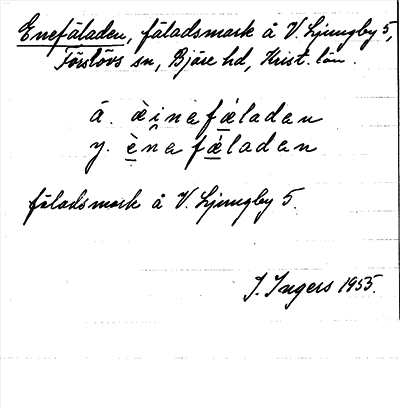 Enefäladen, fäladsmark å V. Ljungby 5,
Förslövs sn, Bjäre hd, Krist. län.
ä. æ̀inèfǽladan
y. ènafǽladan
fäladsmark å V. Ljungby 5.
I. Ingers 1955.